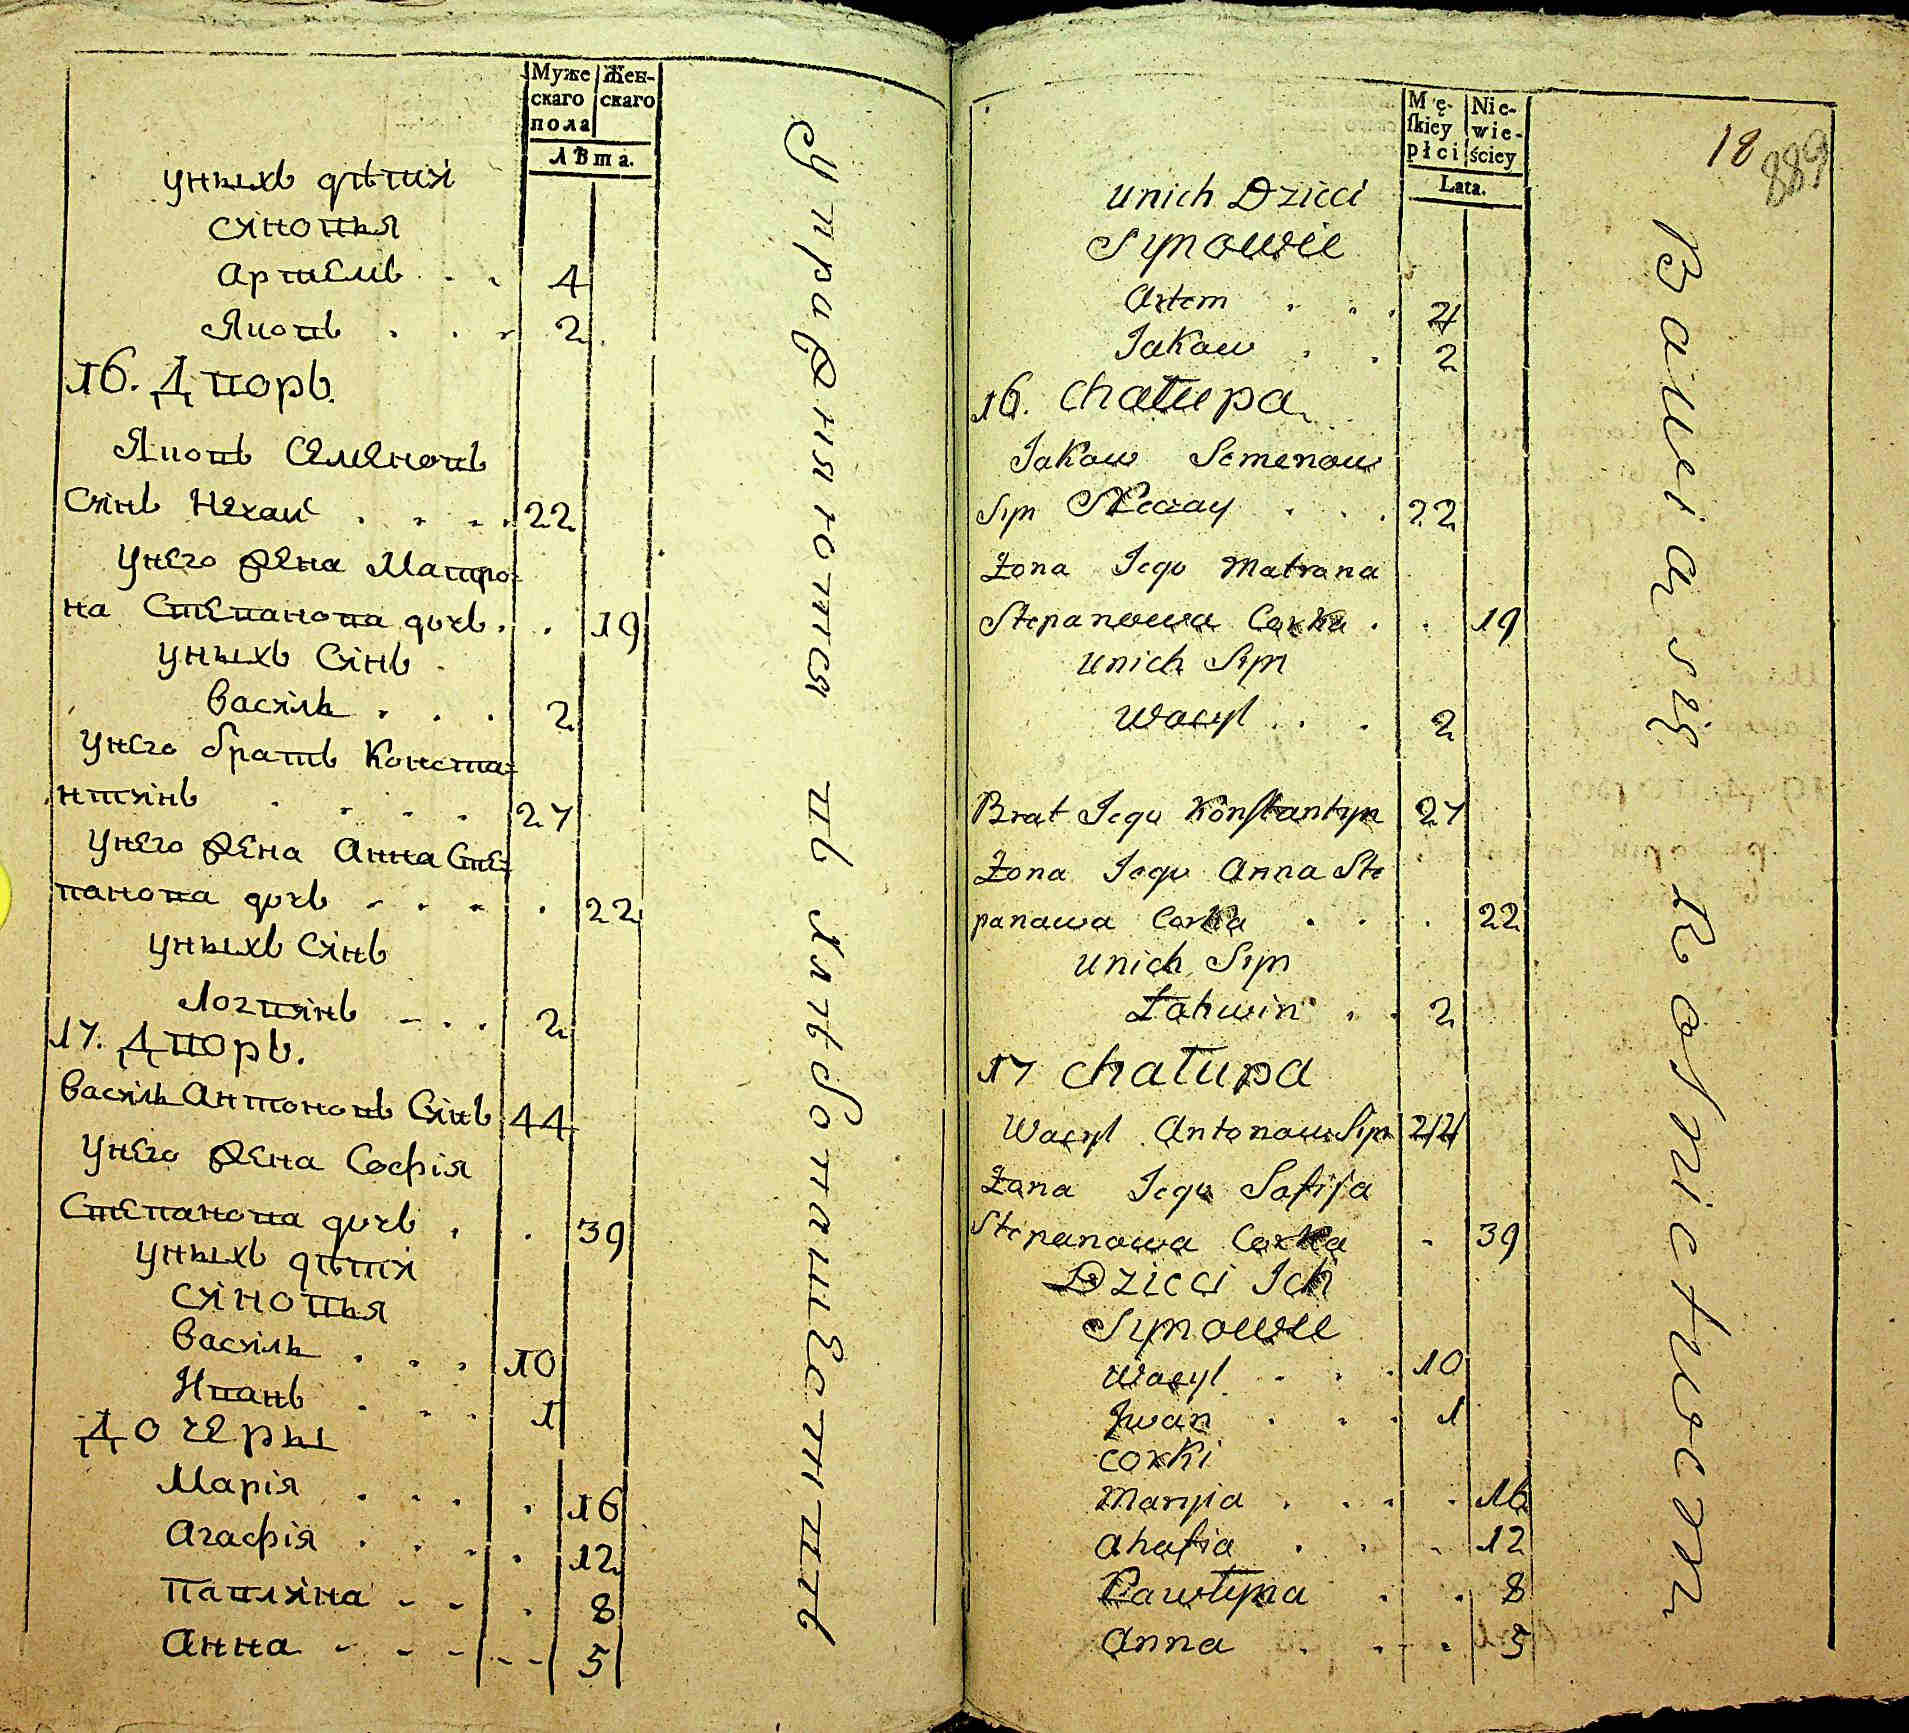 Муже
скаго
пола
Жен-
скаго
Лѣта.
уныхъ дѣтій
сіновья
Артемъ . . 4
Яковъ . . . 2
16. Дворъ.
Яковъ Семеновъ
Сінъ Нечай . . . . 22
унего жена Матро-
на Степанова дочь . . 19
уныхъ Сінъ
Василь . . . 2
унего братъ Конста-
нтинъ . . . . 27
унего жена Анна Сте-
панова дочь . . . . 22
уныхъ Сінъ
Логвинъ . . . 2
17. Дворъ.
Василь Антоновъ Сінъ 44
унего жена Софія
Степанова дочь . . 39
уныхъ дѣтій
сіновья
Василь . . . 10
Иванъ . . . 1
Дочеры
Марія . . . . 16
Агафія . . . . 12
Павлина . . . 8
Анна . . . . . 5
упражняются въ хлѣбопашествѣ
Mę-
ſkiey
płci
Nie-
wie-
ściey
Lata.
18
889
unich Dzieci
Synowie
Artem . . . 4
Jakow . . 2
16. Chałupa
Jakow Semenow
Syn Neczay . . . 22
Żona Jego Matrona
Stepanowa Corka . . 19
unich Syn
Wasyl . . . 2
Brat Jego Konſtantyn 27
Żona Jego Anna Ste
panawa Corka . . . 22
unich Syn
Łahwin . . 2
17 Chałupa
Wasyl Antonow Syn 44
Żona Jego Sofija
Stepanowa Corka . 39
Dzieci Ich
Synowie
Wasyl . . . 10
Jwan . . . 1
corki
Maryia . . . . 16
Ahafia . . . 12
Pawłyna . . 8
Anna . . . 5
Bawią się Rolnictwem